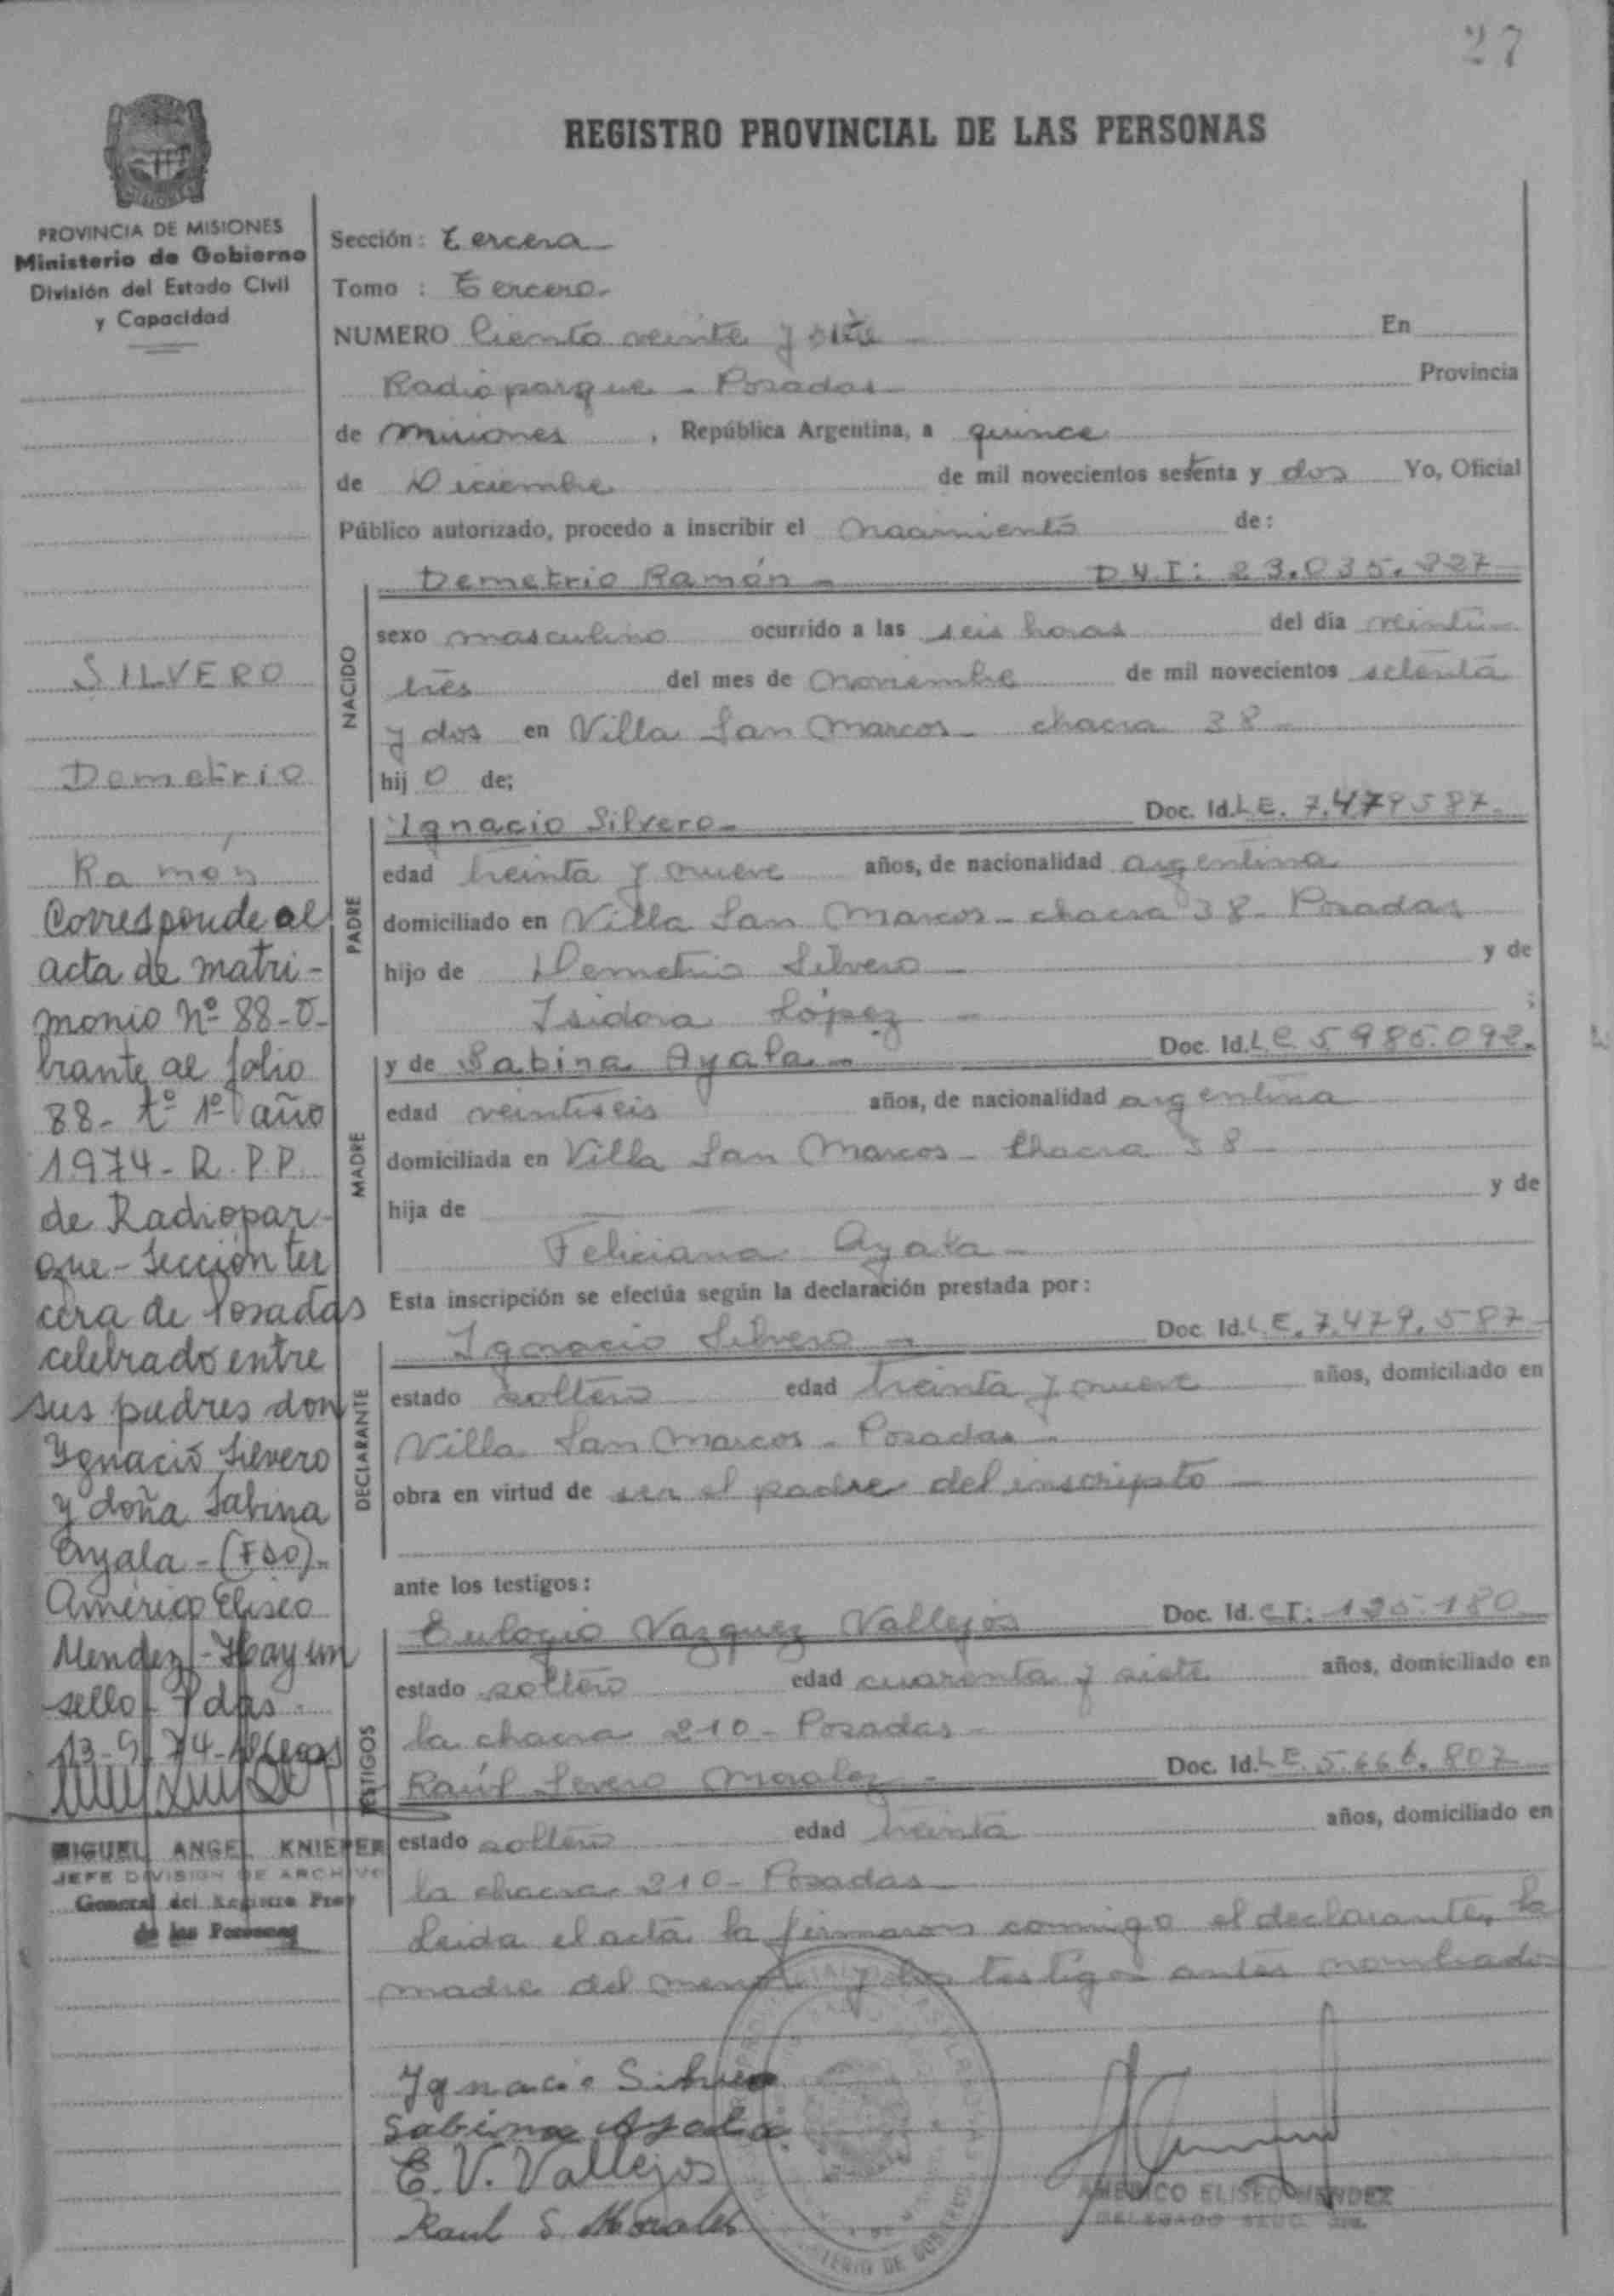 27
REGISTRO PROVINCIAL DE LAS PERSONAS
MISIONES
PROVINCIA DE MISIONES
Ministerio de Gobierno
División del Estado Civil
y Capacidad
SILVERO
Demetrio
Ramón
Corresponde al
acta de matri-
monio Nº 88-O-
brante al folio
88- tº 1º año
1974- R.P.P.
de Radiopar-
que- Sección ter
cera de Posadas
celebrado entre
sus padres don
Ygnacio Silvero
y doña Sabina
Ayala-(FDO)-
Américo Eliseo
Mendez- Hay un
sello- Pdas.
13-9-74-
MIGUEL ANGEL KNIEPER
JEFE DIVISION DE ARCHIVO
General del Registro Prov
de las Personas
Sección: Tercera
Tomo : Tercero-
NUMERO Ciento veinte y siete En
Radioparque - Posadas Provincia
de Misiones , República Argentina, a quince
de Diciembre de mil novecientos setenta y dos Yo, Oficial
Público autorizado, procedo a inscribir el nacimiento de:
NACIDO
Demetrio Ramón - D.N.I: 23.035.227
sexo masculino ocurrido a las seis horas del día veinti-
trés del mes de noviembre de mil novecientos setenta
y dos en Villa San Marcos- chacra 38-
hij o de;
PADRE
Ignacio Silvero- Doc. Id. L.E. 7.479587-
edad treinta y nueve años, de nacionalidad argentina
domiciliado en Villa San Marcos- chacra 38- Posadas
hijo de Demetrio Silvero - y de
Isidora López - ;
MADRE
y de Sabina Ayala- Doc. Id. L.C. 5985.092.
edad veintiseis años, de nacionalidad argentina
domiciliada en Villa San Marcos- Chacra 38-
hija de y de
Feliciana Ayala-
Esta inscripción se efectúa según la declaración prestada por:
DECLARANTE
Ignacio Silvero - Doc. Id. L.E. 7.479.587-
estado soltero edad treinta y nueve años, domiciliado en
Villa San Marcos- Posadas-
obra en virtud de ser el padre del inscripto -
ante los testigos:
TESTIGOS
Eulogio Vazquez Vallejos Doc. Id. CI: 125.180
estado soltero edad cuarenta y siete años, domiciliado en
la chacra 210- Posadas-
Raúl Severo Morales - Doc. Id. L.E. 5.666.807
estado soltero edad treinta años, domiciliado en
la chacra 210- Posadas-
Leída el acta la firmaron conmigo el declarante, la
madre del menor y los testigos antes nombrados
Ygnacio Silvero
Sabina Ayala
E. V. Vallejos
Raul S. Morales
AMERICO ELISEO MENDEZ
DELEGADO